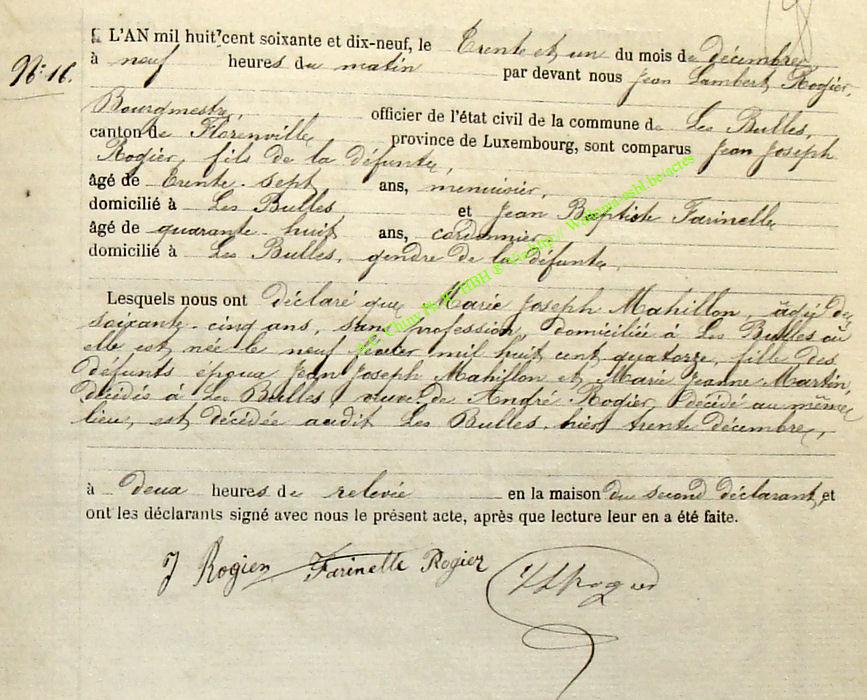 L'AN mil huit cent soixante et dix-neuf, le Trente et un du mois de décembre,
à neuf heures du matin par devant nous Jean Lambert Rogier,
N° 16.
Bourgmestre, officier de l'état civil de la commune de Les Bulles,
canton de Florenville, province de Luxembourg, sont comparus Jean Joseph
Rogier, fils de la défunte,
âgé de trente-sept ans, menuisier,
domicilié à Les Bulles et Jean Baptiste Farinelle
âgé de quarante-huit ans, cordonnier,
domicilié à Les Bulles, gendre de la défunte,
Lesquels nous ont déclaré que Marie Joseph Mahillon, âgée de
soixante-cinq ans, sans profession, domiciliée à Les Bulles où
elle est née le neuf mil huit cent quatorze, fille des
défunts époux Jean Joseph Mahillon et Marie Jeanne Martin,
décédés à Les Bulles, veuve de André Rogier, décédé au même
lieu, est décédée audit Les Bulles, hier trente décembre,
à deux heures de relevée en la maison du second déclarant, et
ont les déclarants signé avec nous le présent acte, après que lecture leur en a été faite.
J Rogier Farinelle Rogier